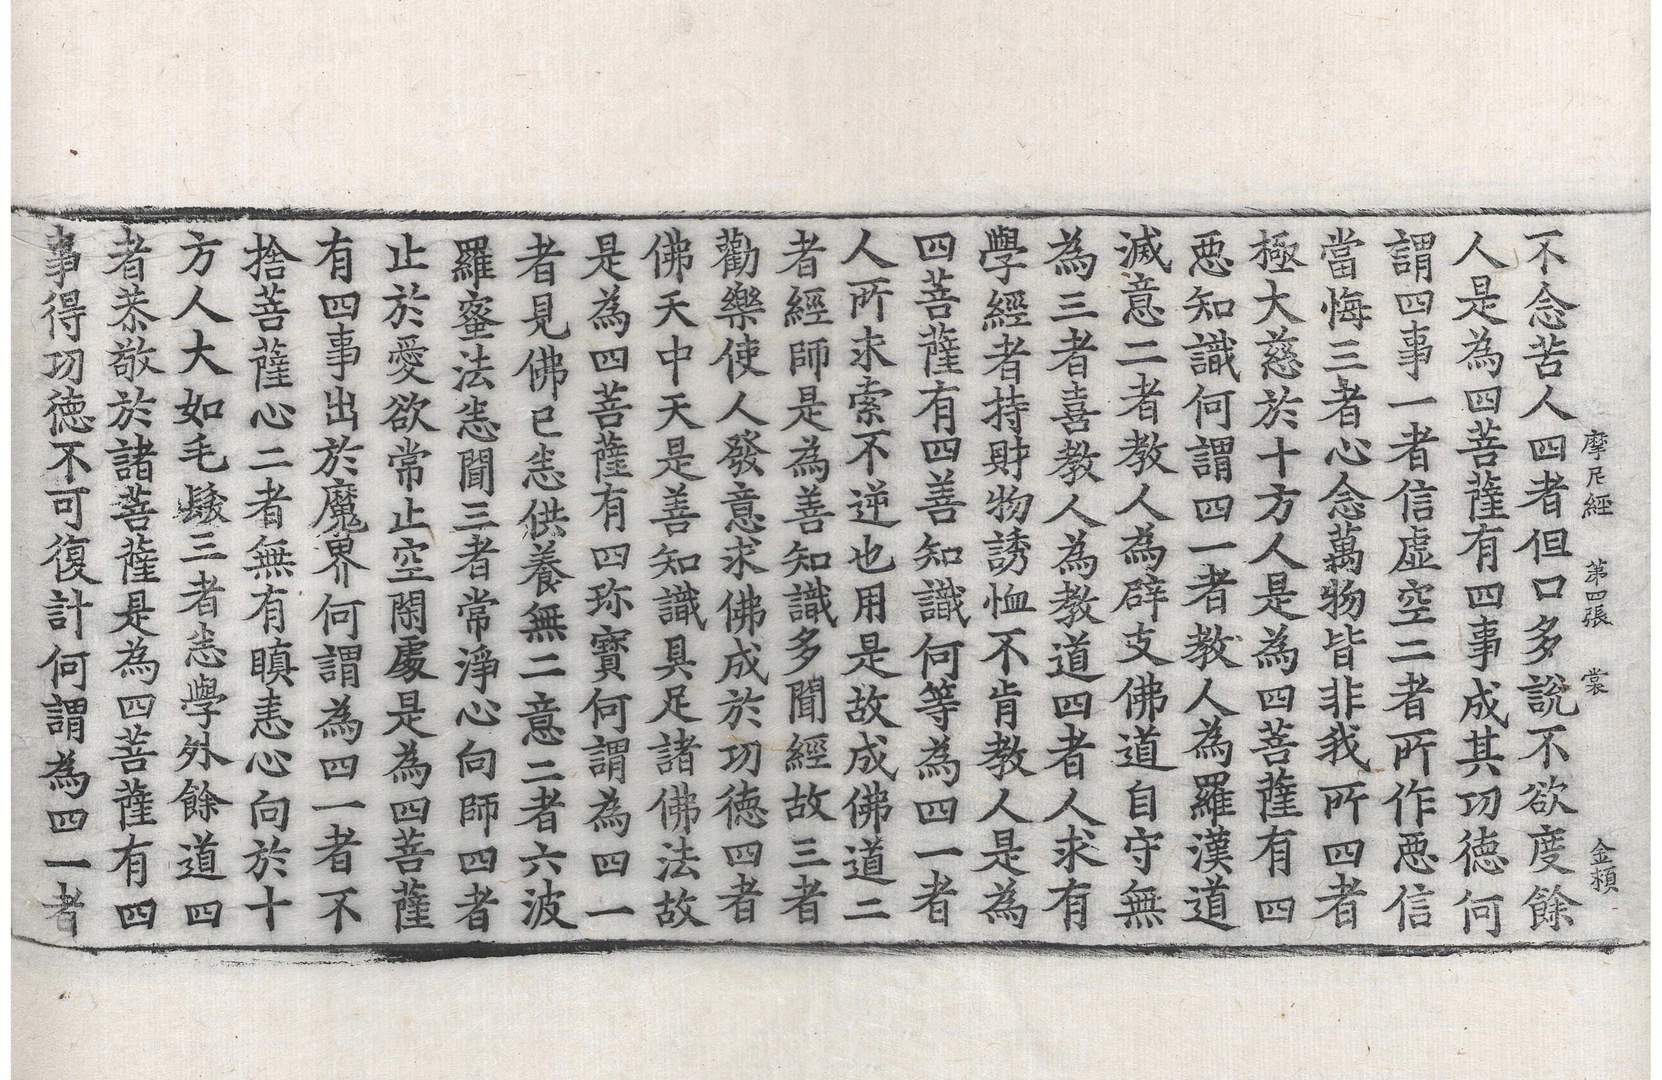 摩尼經　第四張　裳　金賴
不念苦人四者但口多說不欲度餘
人是為四菩薩有四事成其功德何
謂四事一者信虛空二者所作惡信
當悔三者心念萬物皆非我所四者
極大慈於十方人是為四菩薩有四
惡知識何謂四一者教人為羅漢道
滅意二者教人為辟支佛道自守無
為三者喜教人為教道四者人求有
學經者持財物誘恤不肯教人是為
四菩薩有四善知識何等為四一者
人所求索不逆也用是故成佛道二
者經師是為善知識多聞經故三者
勸樂使人發意求佛成於功德四者
佛天中天是善知識具足諸佛法故
是為四菩薩有四珎寶何謂為四一
者見佛已悉供養無二意二者六波
羅蜜法悉聞三者常淨心向師四者
止於愛欲常止空閑處是為四菩薩
有四事出於魔界何謂為四一者不
捨菩薩心二者無有瞋恚心向於十
方人大如毛髮三者悉學外餘道四
者恭敬於諸菩薩是為四菩薩有四
事得功德不可復計何謂為四一者